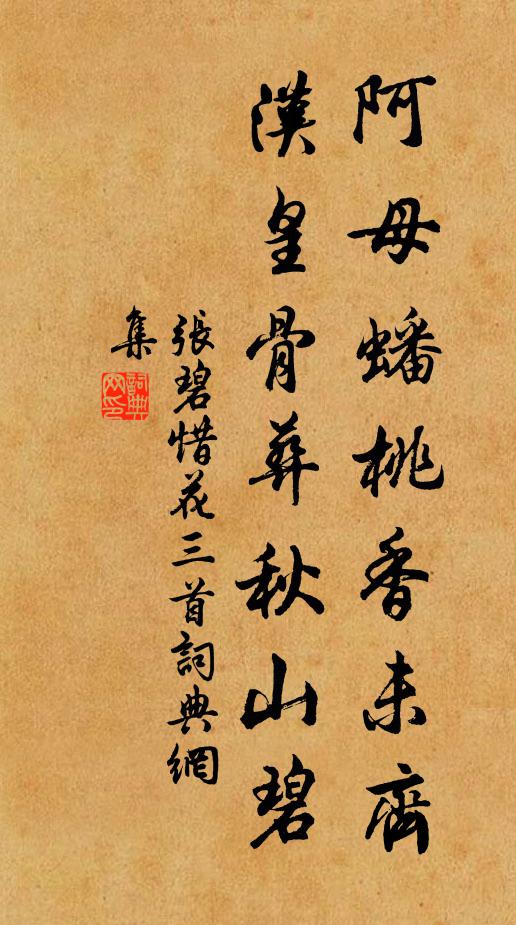 阿母蟠桃香未齊
漢皇骨葬秋山碧
張碧惜花三首詞典網
集
詞典
网印